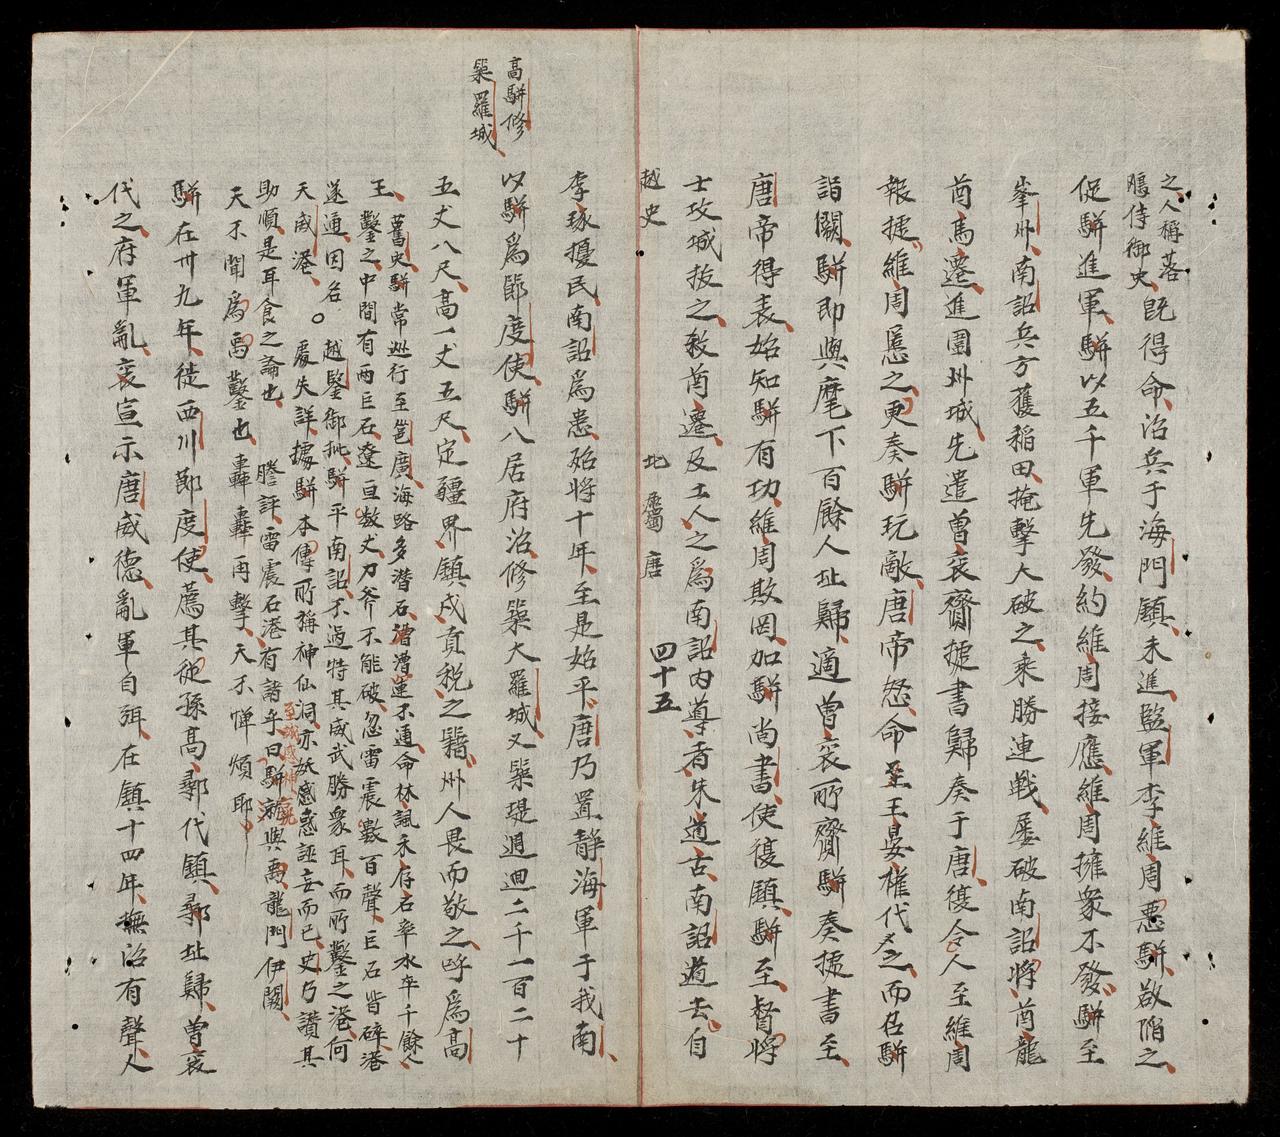 之、人稱落
鵰侍御史、
既得命、治兵于海門鎮、未進、監軍李維周惡駢、欲陷之、
促駢進軍、駢以五千軍先發、約維周接應、維周擁衆不發、駢至
峯州、南詔兵方獲稻田、掩擊大破之、乘勝連戰、屡破南詔將、酋龍
酋馬遷進圍州城、先遣曾袞齎捷書歸奏于唐、復令人至維周
報捷、維周慝之、更奏駢玩敵、唐帝怒、命王晏權代之、而召駢
詣闕、駢即與麾下百餘人北歸、適曾袞所齎駢奏捷書至、
唐帝得表、始知駢有功、維周欺罔、加駢尚書、使復鎮、駢至督將
士攻城拔之、殺酋遷、及土人之爲南詔內導者朱道古、南詔遁去、自
越史 北屬唐 四十五
李琢擾民、南詔爲患、殆將十年、至是始平、唐乃置靜海軍于我南、
以駢爲節度使、駢入居府治、修築大羅城、又築堤週迴二千一百二十
高駢修
築羅城、
五丈八尺、高一丈五尺、定疆界、鎮戍貢稅之籍、州人畏而敬之、呼爲高
王、
舊史、駢常廵行至邕廣、海路多潛石、漕運不通、命林諷、余存古率水卒千餘人
鑿之、中間有兩巨石、遼亘數丈、刀斧不能破、忽雷震數百聲、巨石皆碎、港
遂通、因名
天威港、○越鑒御批、駢平南詔、不過特其威武勝衆耳、而所鑿之港、何
處失詳、據駢本傳所稱神仙洞、亦妖感惑誣妄而已、史乃讚其
助順、是耳食之論也、 謄評、雷震石港有諸乎、曰駢若與禹龍門伊闕、
至誠感神
天不聞爲禹鑿也、轟轟再擊、天不憚煩耶、
駢在卅九年、徒西川節度使、薦其從孫高鄩代鎮、鄩北歸、曾袞
代之、府軍亂、袞宣示唐威德、亂軍自弭、在鎮十四年、撫治有聲、人